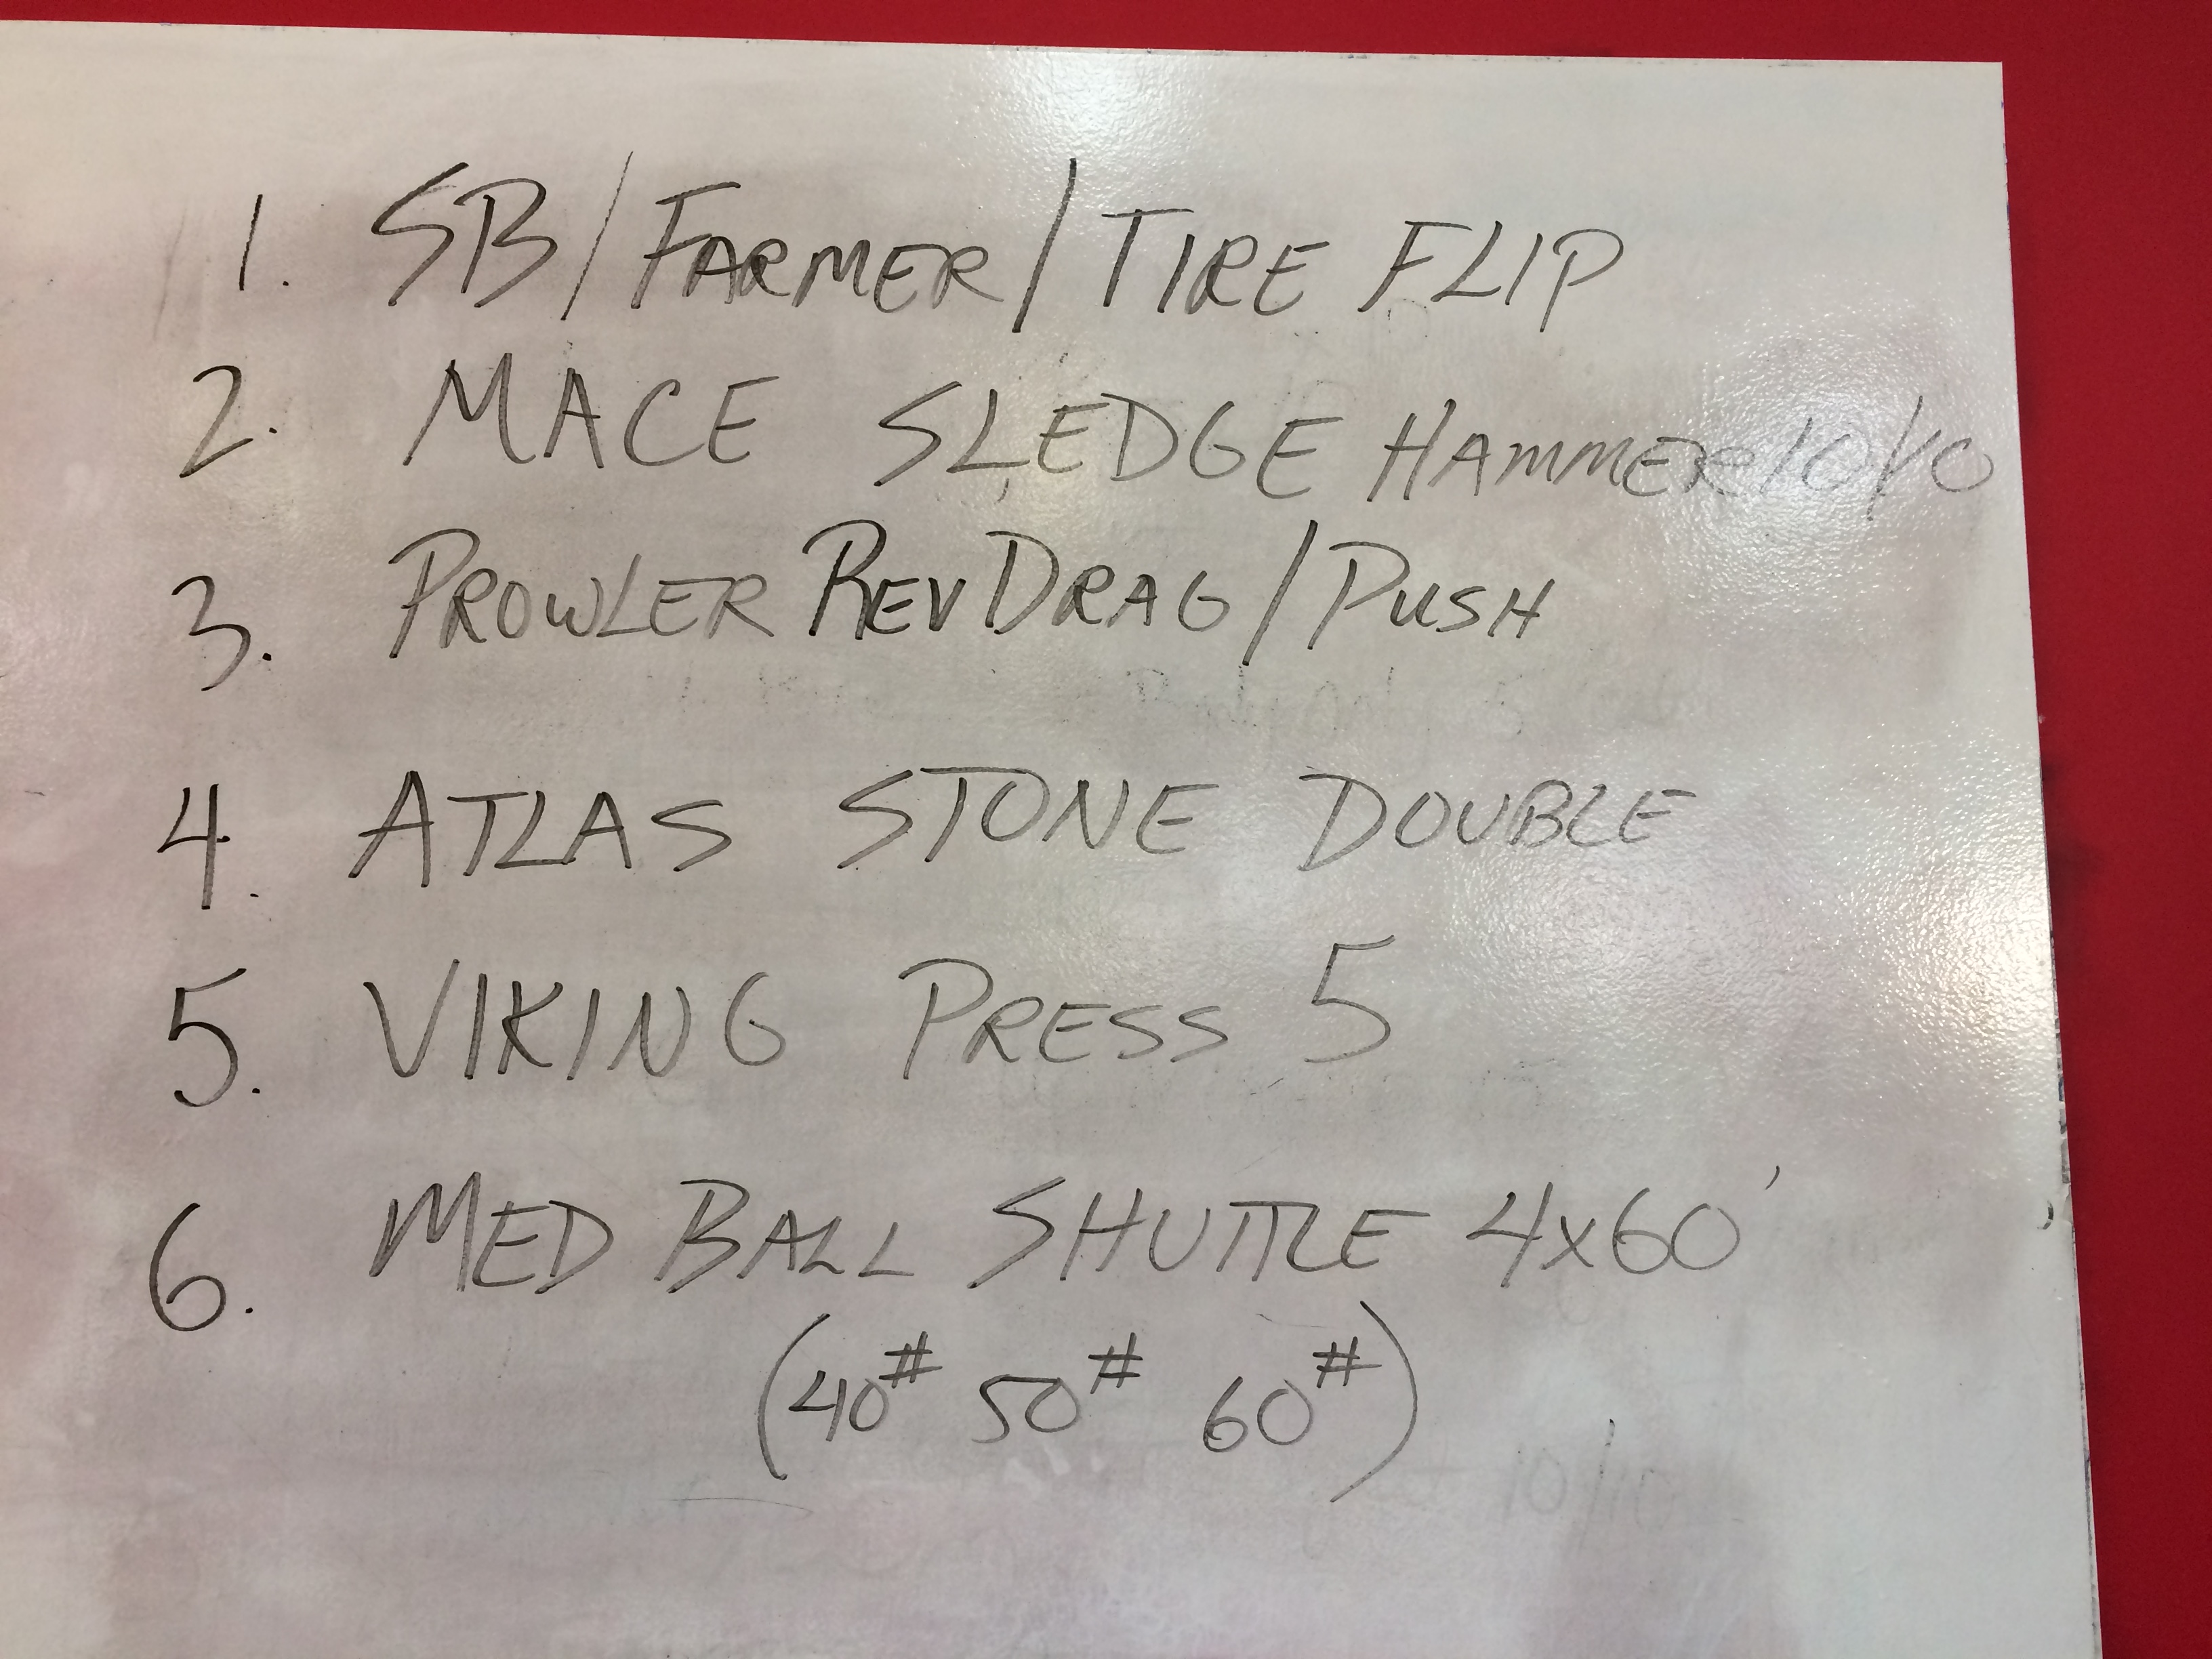 1. SB/FARMER/TIRE FLIP
2. MACE SLEDGE HAMMER 10/10
3. PROWLER REV DRAG/PUSH
4. ATLAS STONE DOUBLE
5. VIKING PRESS 5
6. MED BALL SHUTTLE 4x60'
(40# 50# 60#)
10/10